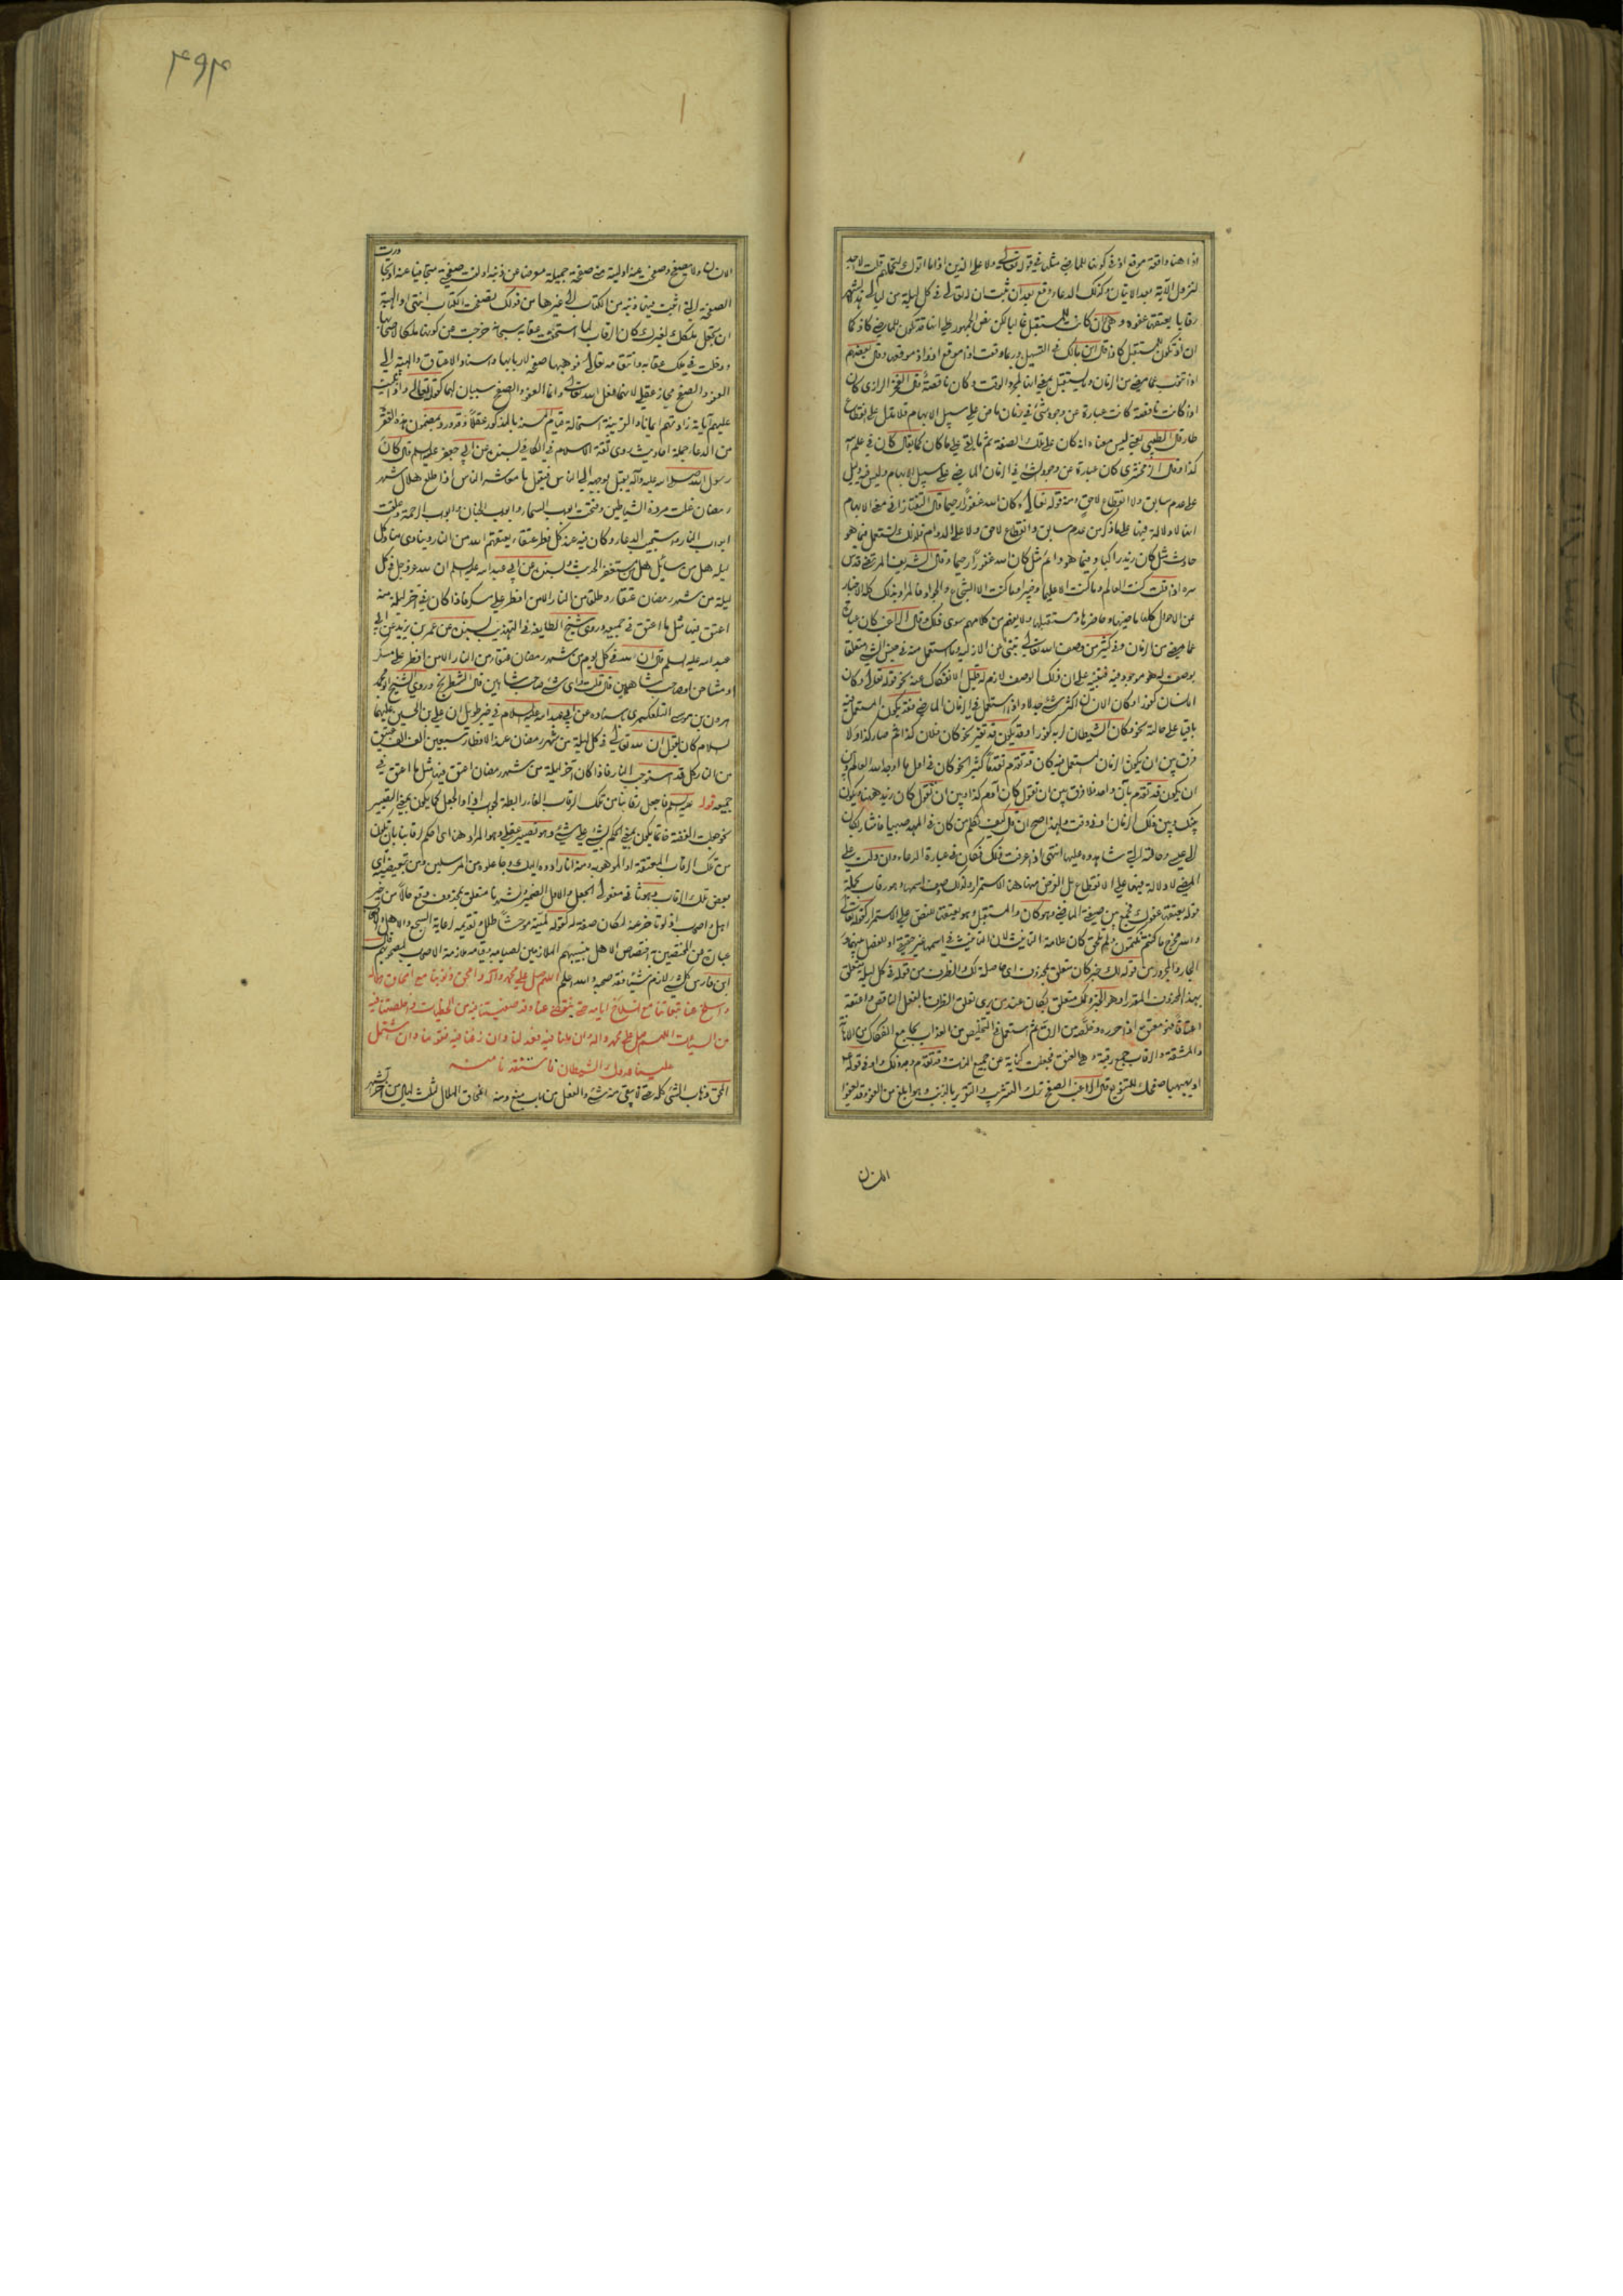 اذا هنا واقعة موقع اذ في كونها للماضي مثلها في قوله تعالى ولا على الذين اذا ما اتوك لتحملهم قلت لا اجد
لنزول الآية بعد الاتيان وكذلك الدعاء وقع بعد ان ثبت ان لله تعالى في كل ليلة من ليالي هذا الشهر
رقابا يعتقها عفوه وهي ان كانت للمستقبل غالبا لكن نص الجمهور على انها قد تكون للماضي كاذ كما
ان اذ تكون للمستقبل كاذا قال ابن مالك في التسهيل وربما وقعت اذا موقع اذ واذ موقعها وقال بعضهم
كانت ناقصة كانت عبارة عن وجود شيء في زمان ماض على سبيل الابهام فلا تدل على انقطاع
طار قال الطيبي يعني ليس معناه انه كان على تلك الصفة ثم ما بقي على ما كان كما يقال كان في علم الله
كذا وقال الزمخشري كان عبارة عن وجود الشيء في الزمان الماضي على سبيل الابهام وليس فيه دليل
على عدم سابق ولا انقطاع لاحق ومنه قوله تعالى وكان الله غفورا رحيما وقال التفتازاني في معنى الابهام
انها لا دلالة فيها على ما ذكر من عدم سابق وانقطاع لاحق ولا على الدوام فلذلك تستعمل فيما هو
حادث مثل كان زيد راكبا وفيما هو دائم مثل كان الله غفورا رحيما وقال الشريف المرتضى قدس
سره اذا قلت كنت العالم وما كنت الا عليما وخبيرا وما كنت الا الشجاع والجواد فالمراد بذلك كله الاخبار
عن الاحوال كلها ماضيها وحاضرها ومستقبلها ولا يفهم من كلامهم سوى ذلك وقال الراغب كان عبارة
عما مضى من الزمان وفي كثير من وصف الله تعالى تنبئ عن الازلية وما استعمل منه في جنس الشيء متعلقا
بوصف له هو موجود فيه فتنبيه على ان ذلك الوصف لازم له قليل الانفكاك عنه نحو قوله تعالى وكان
الانسان كفورا وكان الانسان اكثر شيء جدلا واذا استعمل في الزمان الماضي فقد يكون المستعمل فيه
باقيا على حالته نحو وكان الشيطان لربه كفورا وقد يكون قد تغير نحو كان فلان كذا ثم صار كذا ولا
فرق بين ان يكون الزمان المستعمل فيه كان قد تقدم تقدما كثيرا نحو كان في اول ما اوجد الله العالم وبين
ان يكون قد تقدم بآن واحد فلا فرق بين ان تقول كان آدم كذا وبين ان تقول كان زيد ههنا ويكون
بينك وبين ذلك الزمان ادنى وقت ولهذا صح ان قال كيف نكلم من كان في المهد صبيا فاشار بكان
الى عيسى وحالته التي شاهدوه عليها انتهى اذا عرفت ذلك فكان في عبارة الدعاء وان دلت على
المضي لا دلالة فيها على الانقطاع بل الغرض منها هنا الاستمرار ولذلك وصف اسمها وهو رقاب بجملة
قوله يعتقها عفوك فجمع بين صيغة الماضي وهو كان والمستقبل وهو يعتقها للنص على الاستمرار كقوله تعالى
والله مخرج ما كنتم تكتمون ولم تلحق كان علامة التأنيث لان التأنيث في اسمها غير حقيقي او للفصل بينهما و
الجار والمجرور من قوله لك خبر كان متعلق بمحذوف اي حاصلة لك والظرف من قوله في كل ليلة متعلق
بهذا المحذوف المقدر او هو الخبر ولك متعلق بكان عند من يرى تعلق الظرف بالفعل الناقص واعتقه
اعتاقا فهو معتق اذا حرره وخلصه من الرق ثم استعمل في التخليص من العذاب بجامع الفكاك من الاهانة
والمشقة والرقاب جمع رقبة وهي العنق فجعلت كناية عن جميع الذات وقد تقدم وجه ذلك واو في قوله
او يهبها صفحك للتنويع وقال الراغب الصفح ترك التثريب والتقرير بالذنب وهو ابلغ من العفو وقد يعفو
الانسان
٤٩٤
الانسان ولا يصفح وصفحت عنه اوليته مني صفحة جميلة معرضا عن ذنبه او لقيت صفحته متجافيا عنه او تجاوزت
الصفحة التي اثبت فيها ذنبه من الكتاب الى غيرها من قولك تصفحت الكتاب انتهى والهبة
ان تجعل ملكك لغيرك وكان الرقاب لما استحقت عقابه سبحانه خرجت عن كونها ملكا لاصحابها
ودخلت في ملك عقابه وانتقامه تعالى فوهبها صفحه لاربابها واسناد الاعتاق والهبة الى
العفو والصفح مجاز عقلي لانهما فعل الله تعالى وانما العفو والصفح سببان لهما كقوله تعالى واذا تليت
عليهم آياته زادتهم ايمانا والقرينة استحالة قيام المسند بالمذكور عقلا وقد ورد بمضمون هذه الفقرة
من الدعاء جملة احاديث روى ثقة الاسلام في الكافي بسنده عن ابي جعفر عليه السلم قال كان
رسول الله صلى الله عليه وآله يقبل بوجهه الى الناس فيقول يا معاشر الناس اذا طلع هلال شهر
رمضان غلت مردة الشياطين وفتحت ابواب السماء وابواب الجنان وابواب الرحمة وغلقت
ابواب النار واستجيب الدعاء وكان فيه عند كل فطر عتقاء يعتقهم الله من النار وينادي مناد كل
ليلة هل من سائل هل من مستغفر الحديث وبسنده عن ابي عبد الله عليه السلم ان لله عز وجل في كل
ليلة من شهر رمضان عتقاء وطلقاء من النار الا من افطر على مسكر فاذا كان في آخر ليلة منه
اعتق فيها مثل ما اعتق في جميعه وروى شيخ الطائفة في التهذيب بسنده عن عمر بن يزيد عن ابي
عبد الله عليه السلم قال ان لله في كل يوم من شهر رمضان عتقاء من النار الا من افطر على مسكر
او مشاحن او صاحب شاهين قال قلت واي شيء صاحب شاهين قال الشطرنج وروى الشيخ ابو محمد
هرون بن موسى التلعكبري باسناده عن ابي عبد الله عليه السلام في خبر طويل ان علي بن الحسين عليهما
السلام كان يقول ان لله تعالى في كل ليلة من شهر رمضان عند الافطار سبعين الف الف عتيق
من النار كل قد استوجب النار فاذا كان آخر ليلة من شهر رمضان اعتق فيها مثل ما اعتق في
جميعه قوله عليه السلم فاجعل رقابنا من تلك الرقاب الفاء رابطة لجواب اذا والجعل كما يكون بمعنى التصيير
نحو جعلت الفضة خاتما يكون بمعنى الحكم بشيء على شيء وهو تصيير عقلي وهو المراد هنا اي احكم لرقابنا بان تكون
من تلك الرقاب المعتقة او الموهوبة ومنه انا رادوه اليك وجاعلوه من المرسلين ومن تبعيضية اي
بعض تلك الرقاب
اهل واصحاب اذ لو تاخر عنه لكان صفة له كقوله لمية موحشا طلل وتقديمه لرعاية السجع والاهل والاصحاب
عبارة عن المختصين به
ابن فارس كل شيء لازم شيئا فقد صحبه والله اعلم اللهم صل على محمد وآله وامحق ذنوبنا مع امحاق هلاله
واسلخ عنا تبعاتنا مع انسلاخ ايامه حتى ينقضي عنا وقد صفيتنا فيه من الخطيئات واخلصتنا فيه
من السيئات اللهم صل على محمد وآله وان ملنا فيه فعدلنا وان زغنا فيه فقومنا وان اشتمل
علينا عدوك الشيطان فاستنقذنا منه
المحق ذهاب الشيء كله حتى لا يبقى منه شيء والفعل من باب منع ومنه المحاق لهلال ثلاث ليال من آخر الشهر